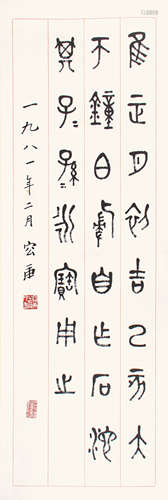 隹正月初吉己亥大
帀鐘白侵自乍石沱
其子=孫=永寶用之
一九八一年二月